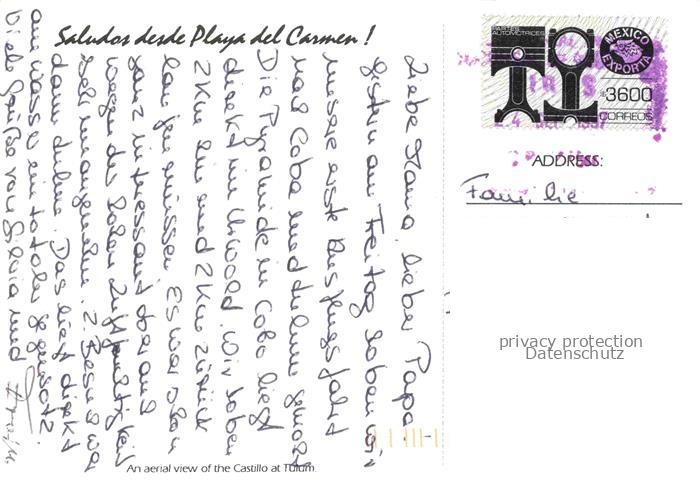 Saludos desde Playa del Carmen !
Liebe Mama, lieber Papa!
gestern am Freitag haben wir
unsere erste Ausflugsfahrt
nach Coba und Tulum gemacht
Die Pyramide in Coba liegt
direkt im Urwald. Wir haben
2 Km hin und 2 Km zurück
laufen müssen. Es war schon
ganz interessant aber auch
wegen der hohen Luftfeuchtigkeit
sehr unangenehm. 2. Besuch war
dann Tulum. Das liegt direkt
am Wasser ein totaler Gegensatz.
Viele Grüße von Silvia und
An aerial view of the Castillo at Tulum.
PARTES
AUTOMOTRICES
MEXICO
EXPORTA
$3600
CORREOS
ADDRESS:
Familie
privacy protection
Datenschutz